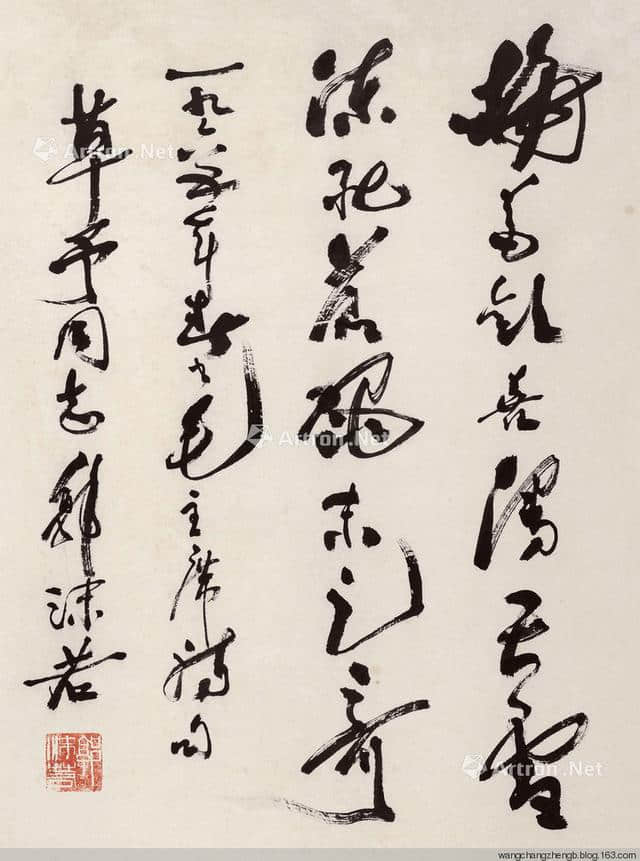 梅花歡喜漫天雪
凍死蒼蠅未足奇
一九六年春書毛主席詩句
草予同志 郭沫若
郭沫若
Artron.Net
Artron.Net
Artron.Net
wangchangzhengb.blog.163.com